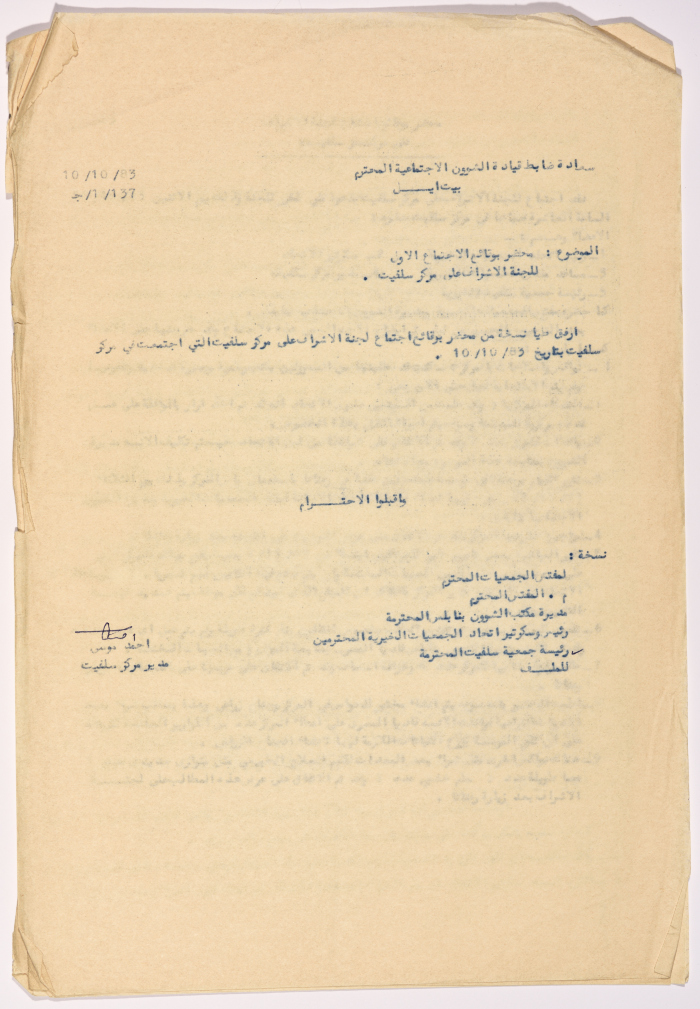 سعادة ضابط قيادة الشؤون الاجتماعية المحترم
بيت ايـــــل
10/10/83
ج/11/137
الموضوع : محضر بوقائع الاجتماع الاول
للجنة الاشراف على مركز سلفيت .
ارفق طيا نسخة من محضر بوقائع اجتماع لجنة الاشراف على مركز سلفيت التي اجتمعت في مركز
سلفيت بتاريخ 10/10/83 .
واقبلوا الاحتـــــرام
نسخة :
لمفتش الجمعيات المحترم
م . المفتش المحترم
مديرة مكتب الشؤون بنابلس المحترمة
رئيس وسكرتير اتحاد الجمعيات الخيرية المحترمين
رئيسة جمعية سلفيت المحترمة
للملـــف
احمد موسى
مدير مركز سلفيت